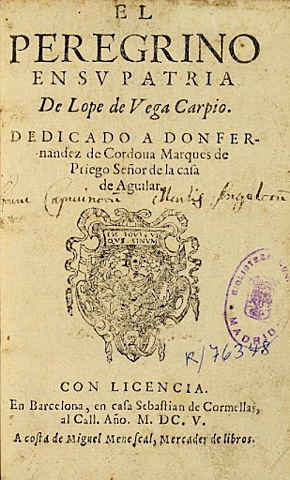 EL
PEREGRINO
EN SV PATRIA
De Lope de Vega Carpio.
DEDICADO A DON FER-
nandez de Cordoua Marques de
Priego Señor de la casa
de Aguilar.
Montis
CON LICENCIA.
En Barcelona, en casa Sebastian de Cormellas,
al Call. Año. M. DC. V.
A costa de Miguel Menescal, Mercader de libros.
BIBLIOTECA
MADRID
R/76348